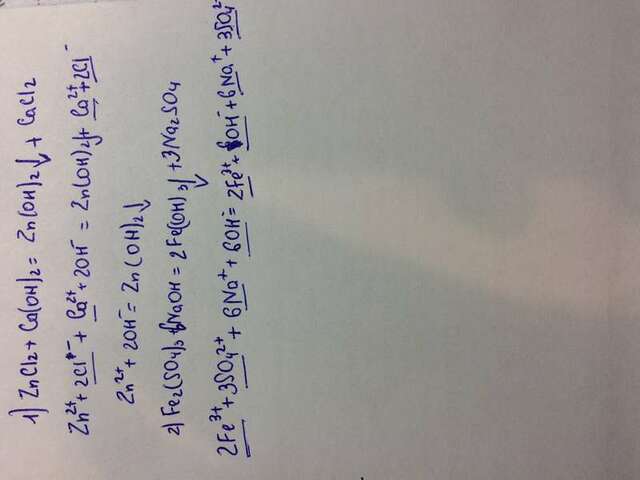 1) ZnCl₂ + Ca(OH)₂ = Zn(OH)₂↓ + CaCl₂
Zn²⁺ + 2Cl⁻ + Ca²⁺ + 2OH⁻ = Zn(OH)₂↓ + Ca²⁺ + 2Cl⁻
Zn²⁺ + 2OH⁻ = Zn(OH)₂↓
2) Fe₂(SO₄)₃ + 6NaOH = 2Fe(OH)₃↓ + 3Na₂SO₄
2Fe³⁺ + 3SO₄²⁺ + 6Na⁺ + 6OH⁻ = 2Fe³⁺ + 6OH⁻ + 6Na⁺ + 3SO₄²⁻